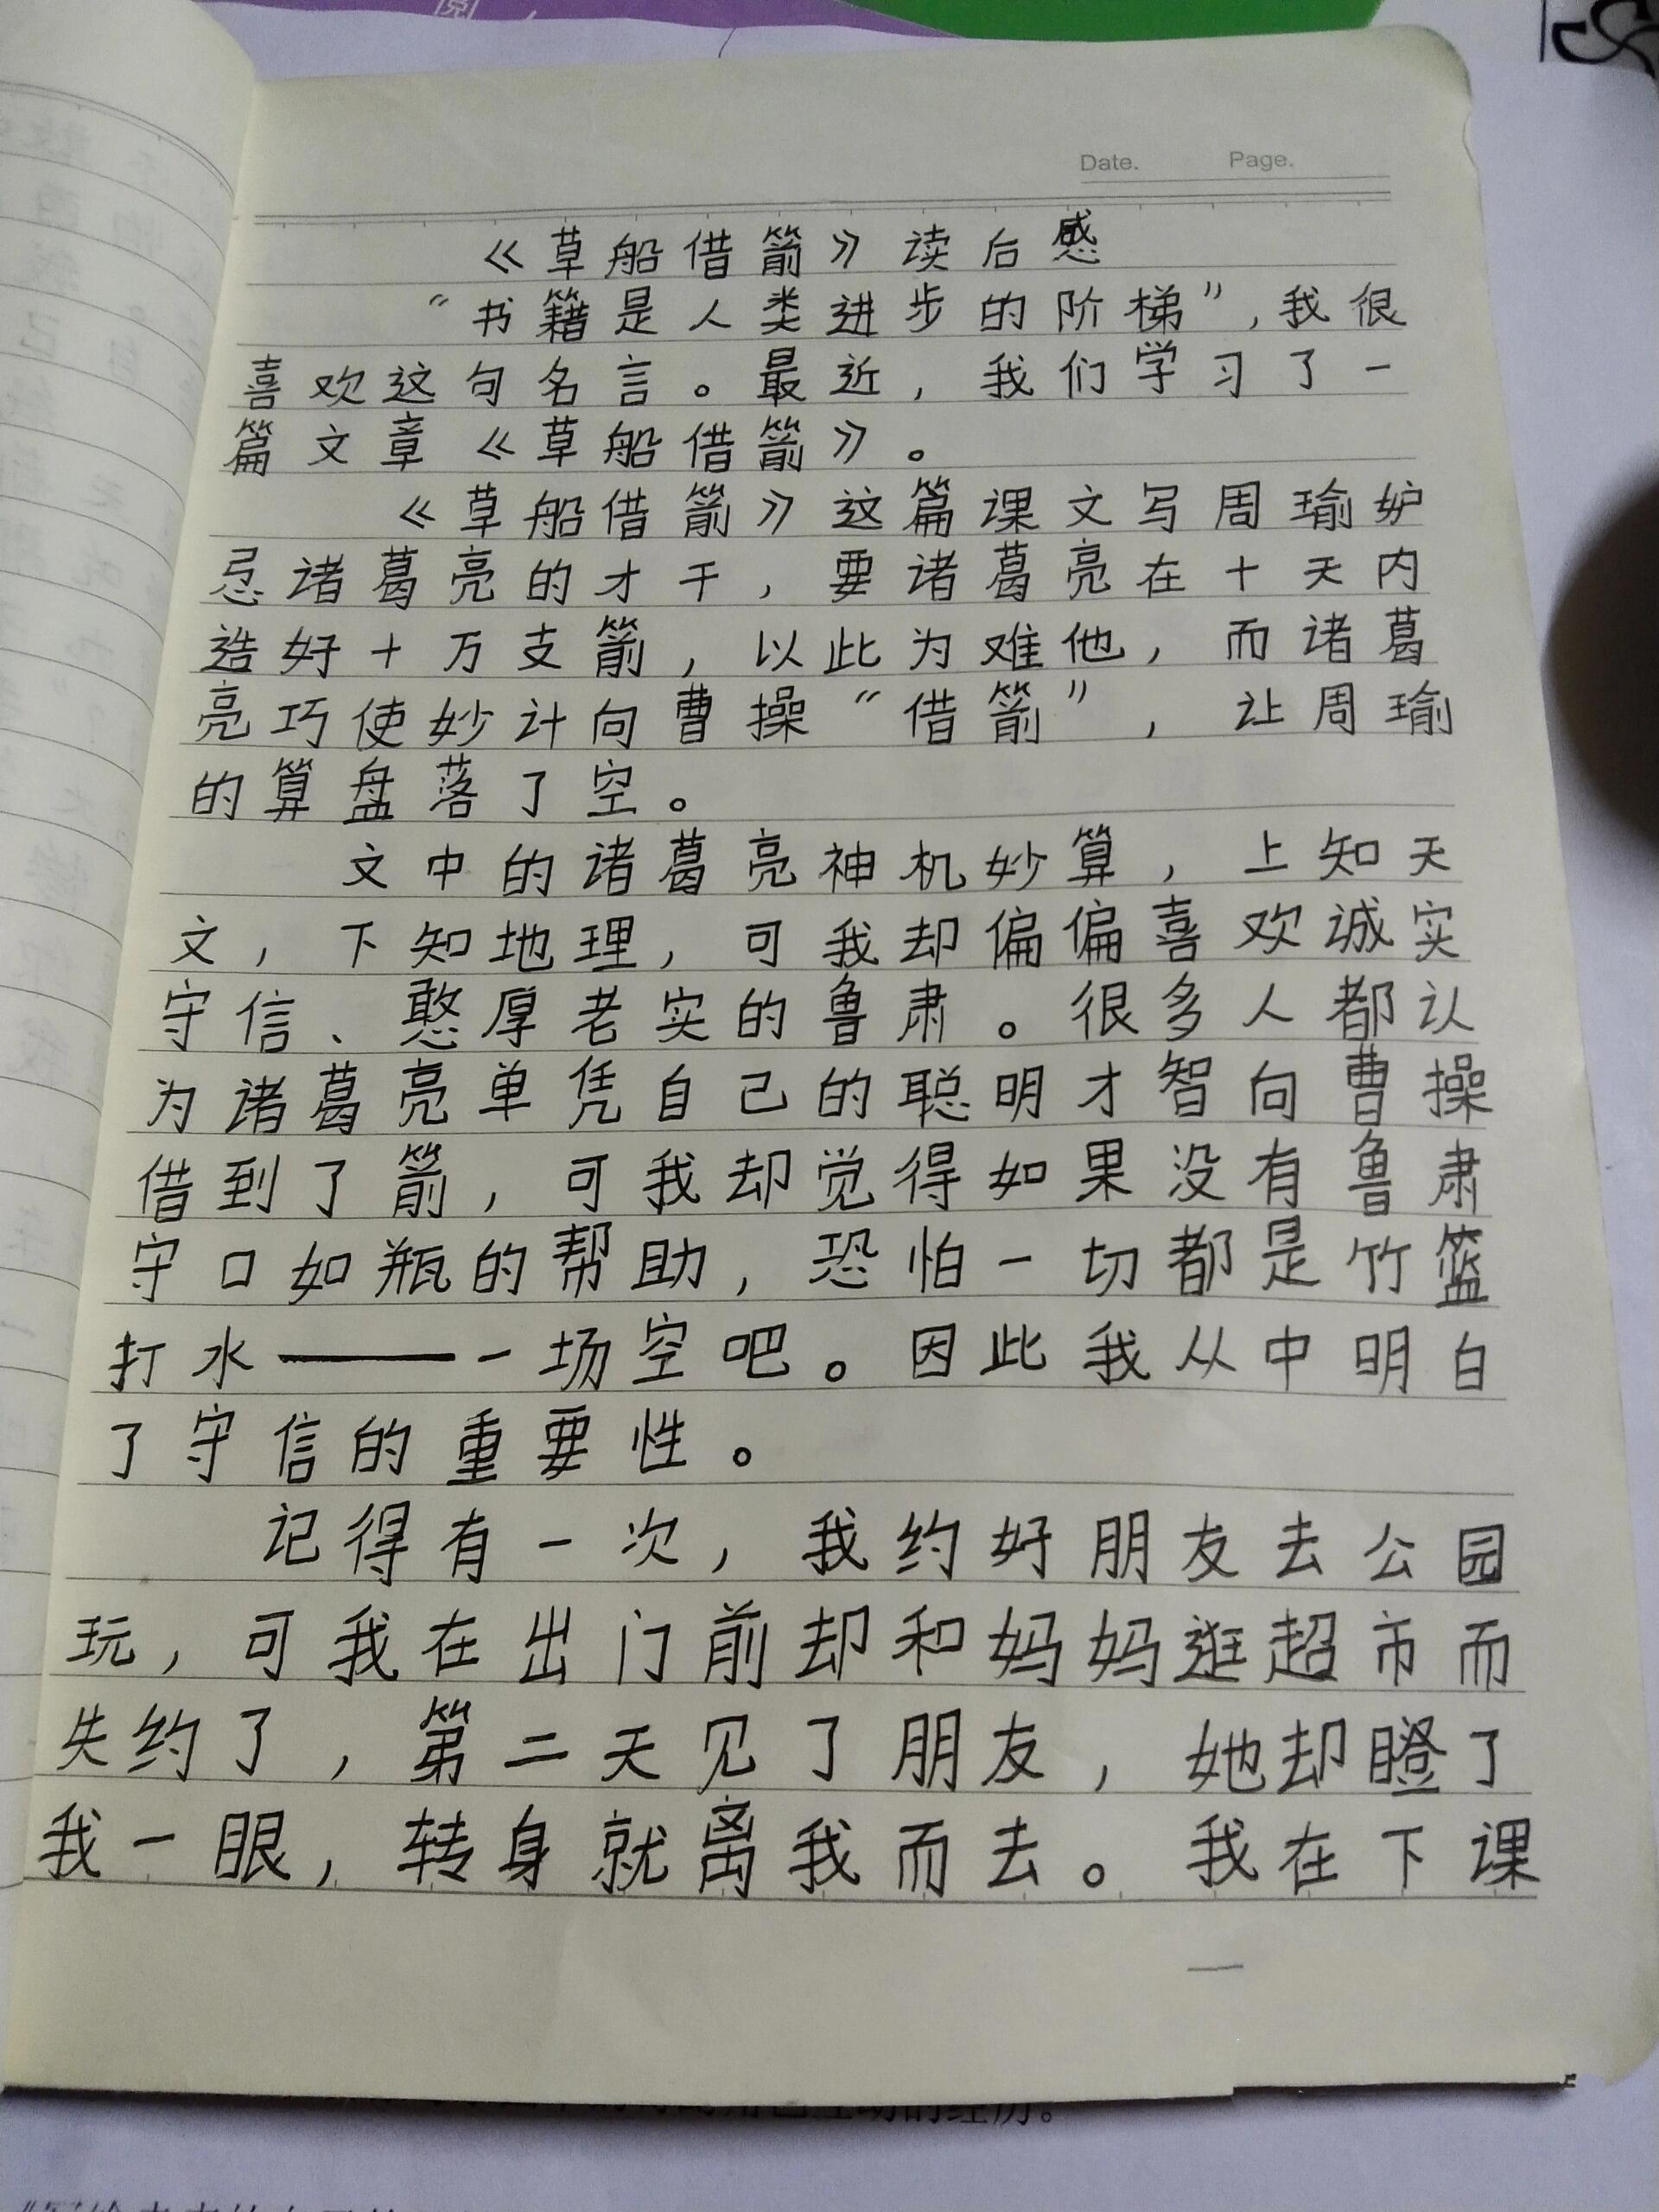 Date. Page.
《草船借箭》读后感
“书籍是人类进步的阶梯”，我很
喜欢这句名言。最近，我们学习了一
篇文章《草船借箭》。
《草船借箭》这篇课文写周瑜妒
忌诸葛亮的才干，要诸葛亮在十天内
造好十万支箭，以此为难他，而诸葛
亮巧使妙计向曹操“借箭”，让周瑜
的算盘落了空。
文中的诸葛亮神机妙算，上知天
文，下知地理，可我却偏偏喜欢诚实
守信、憨厚老实的鲁肃。很多人都认
为诸葛亮单凭自己的聪明才智向曹操
借到了箭，可我却觉得如果没有鲁肃
守口如瓶的帮助，恐怕一切都是竹篮
打水——一场空吧。因此我从中明白
了守信的重要性。
记得有一次，我约好朋友去公园
玩，可我在出门前却和妈妈逛超市而
失约了，第二天见了朋友，她却瞪了
我一眼，转身就离我而去。我在下课